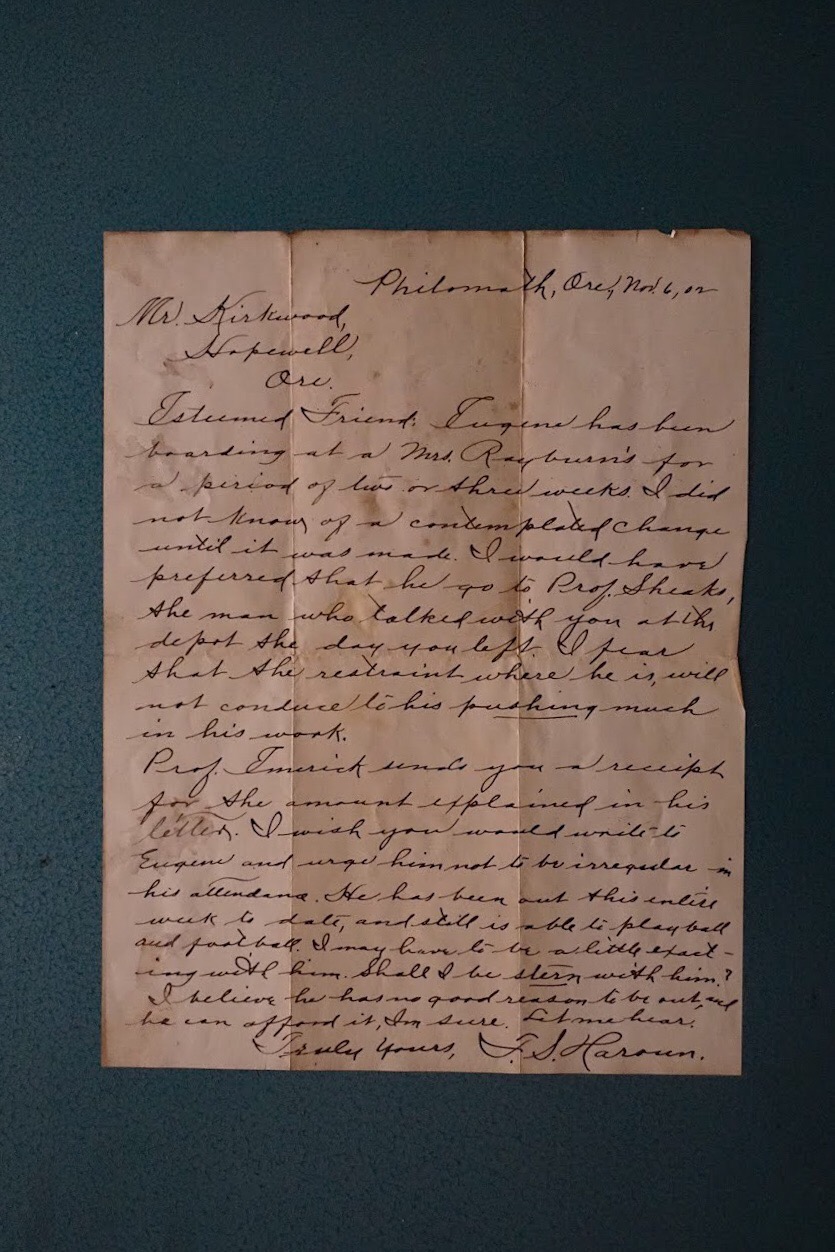 Philomath, Ore., Nov. 6, 02
Mr. Kirkwood,
Hopewell,
Ore.
Esteemed Friend: Eugene has been
boarding at a Mrs. Rayburn's for
a period of two or three weeks. I did
not know of a contemplated change
until it was made. I would have
preferred that he go to Prof. Sheaks,
the man who talked with you at the
depot the day you left. I fear
that the restraint where he is, will
not conduce to his pushing much
in his work.
Prof. Emerick sends you a receipt
for the amount explained in his
letter. I wish you would write to
Eugene and urge him not to be irregular in
his attendance. He has been out this entire
week to date, and still is able to play ball
and football. I may have to be a little exact-
ing with him. Shall I be stern with him?
I believe he has no good reason to be out, and
he can afford it, I'm sure. Let me hear.
Truly Yours, F. S. Haroun.